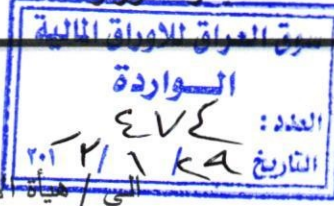 سوق العراق للاوراق المالية
الـواردة
العدد: ٤٧٤
التاريخ ٢٩ / ١ / ٢٠١٢
الى / هيأة